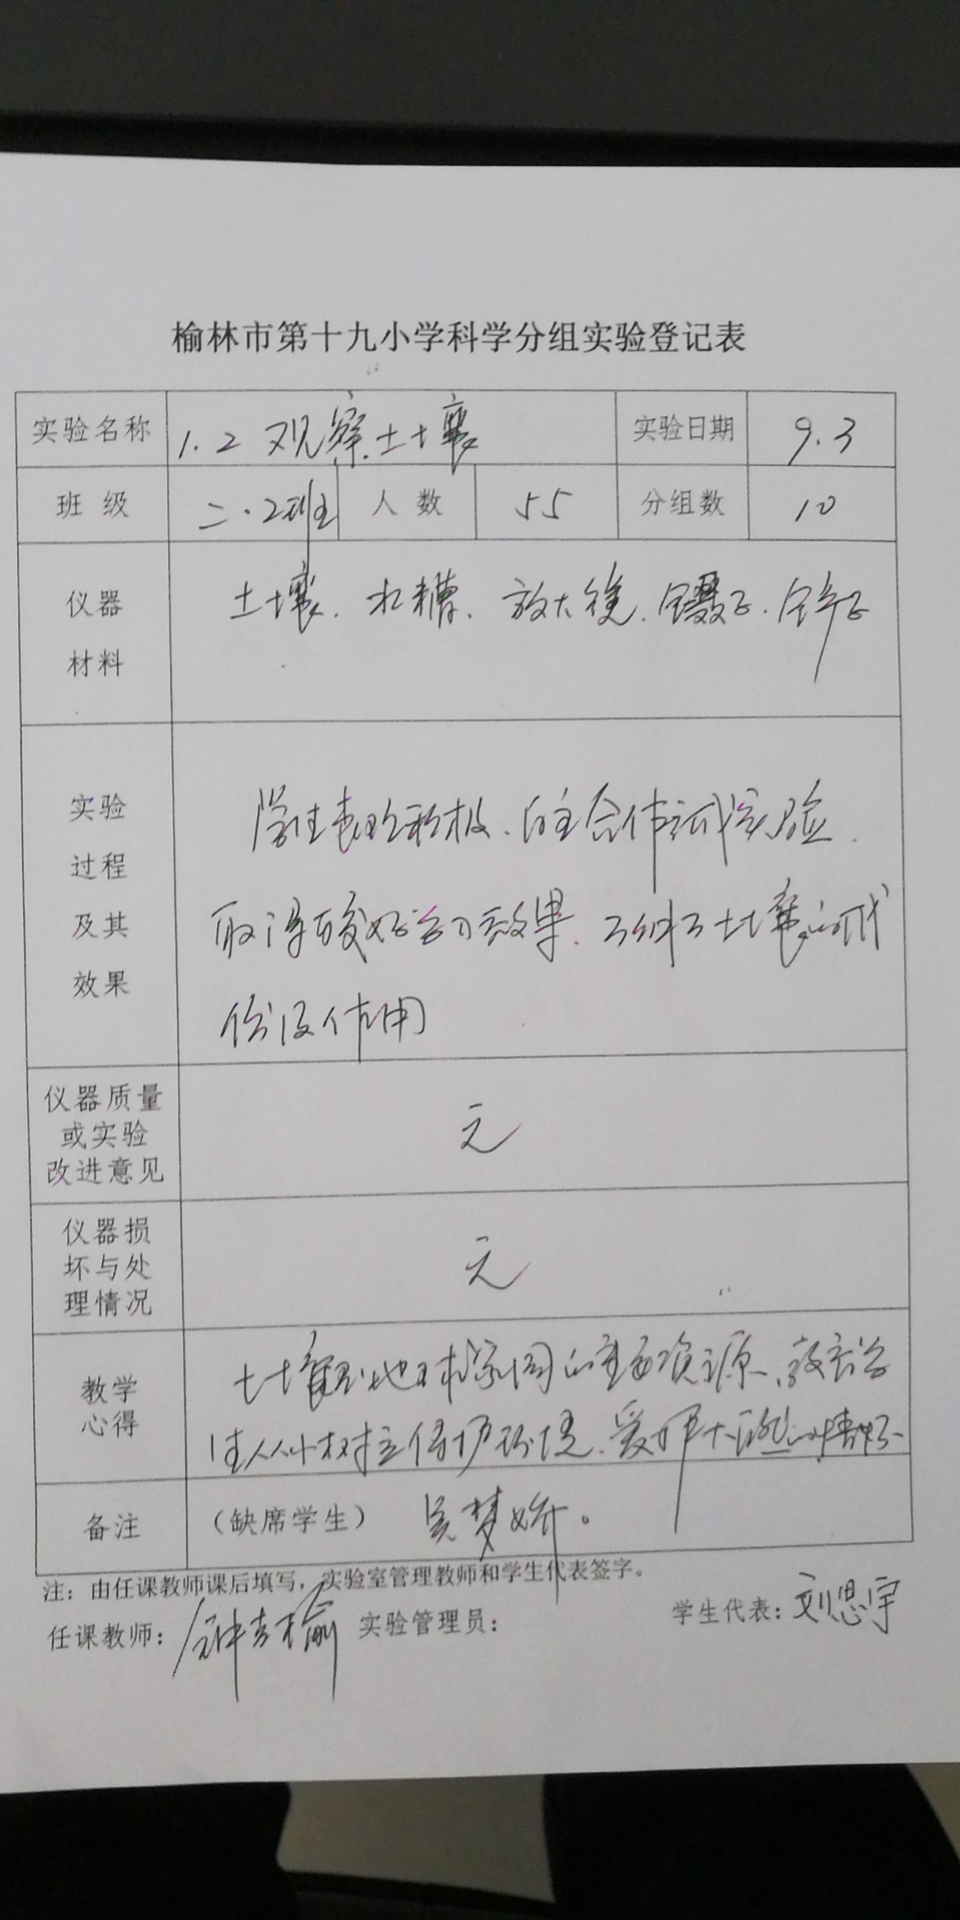 榆林市第十九小学科学分组实验登记表
实验名称 1.2 观察土壤 实验日期 9.3
班 级 二.2班 人 数 55 分组数 10
仪器
材料
土壤、水槽、放大镜、镊子、铲子
实验
过程
及其
效果
学生表现积极、自主合作完成实验、
取得较好学习效果、了解了土壤的成
份及作用
仪器质量
或实验
改进意见
无
仪器损
坏与处
理情况
无
教学
心得
土壤是地球家园的重要资源、教育学
生从小树立保护环境、爱护大自然的情怀
备注 （缺席学生） 吴梦娇。
注：由任课教师课后填写，实验室管理教师和学生代表签字。
任课教师： 实验管理员： 学生代表：刘思宇